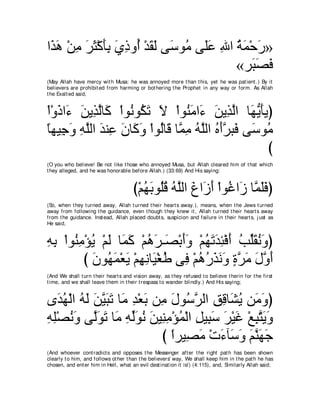 «رَحْمَةُ اللهِ عَلَى مُوسَى لَقَدْ أُوذِيَ بِأَكْثَرَ مِنْ هَذَا
فَصَبَر»
(May Allah have mercy with Musa; he was annoyed more than this, yet he was patient.) By it
believers are prohibited from harming or bothering the Prophet in any way or form. As Allah
the Exalted said,
﴿يأَيُّهَا الَّذِينَ ءَامَنُواْ لاَ تَكُونُواْ كَالَّذِينَ ءَاذَوْاْ
مُوسَى فَبرَّأَهُ اللَّهُ مِمَّا قَالُواْ وَكَانَ عِندَ اللَّهِ وَجِيهاً
﴾
(O you who believe! Be not like those who annoyed Musa, but Allah cleared him of that which
they alleged, and he was honorable before Allah.) (33:69) And His saying:
﴿فَلَمَّا زَاغُواْ أَزَاغَ اللَّهُ قُلُوبَهُمْ﴾
(So, when they turned away, Allah turned their hearts away.), means, when the Jews turned
away from following the guidance, even though they knew it, Allah turned their hearts away
from the guidance. Instead, Allah placed doubts, suspicion and failure in their hearts, just as
He said,
﴿وَنُقَلِّبُ أَفْئِدَتَهُمْ وَأَبْصَـرَهُمْ كَمَا لَمْ يُؤْمِنُواْ بِهِ
أَوَّلَ مَرَّةٍ وَنَذَرُهُمْ فِى طُغْيَانِهِمْ يَعْمَهُونَ ﴾
(And We shall turn their hearts and vision away, as they refused to believe therin for the first
time, and we shall leave them in their trespass to wander blindly.) And His saying;
﴿وَمَن يُشَاقِقِ الرَّسُولَ مِن بَعْدِ مَا تَبَيَّنَ لَهُ الْهُدَى
وَيَتَّبِعْ غَيْرَ سَبِيلِ الْمُؤْمِنِينَ نُوَلِّهِ مَا تَوَلَّى وَنُصْلِهِ
جَهَنَّمَ وَسَآءَتْ مَصِيراً ﴾
(And whoever contradicts and opposes the Messenger after the right path has been shown
clearly to him, and follows other than the believers' way. We shall keep him in the path he has
chosen, and enter him in Hell, what an evil destination it is!) (4:115), and, Similarly Allah said;